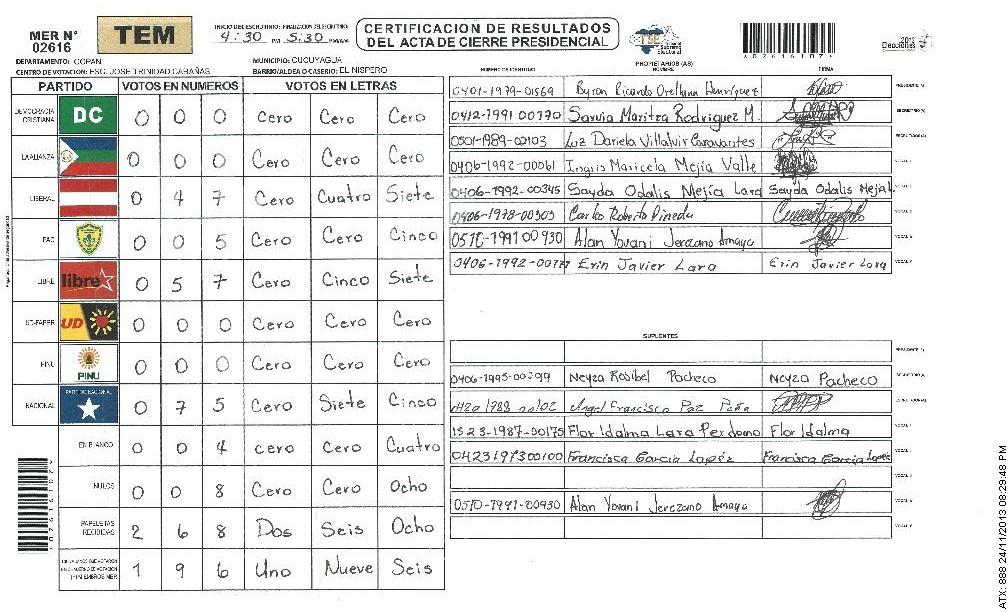 MER N° 02616
TEM
INICIO DEL ESCRUTINIO: FINALIZACION DEL ESCRUTINIO:
4:30 PM 5:30 PM
CERTIFICACION DE RESULTADOS
DEL ACTA DE CIERRE PRESIDENCIAL
TSE
Elecciones 2013
DEPARTAMENTO: COPAN
MUNICIPIO: CUCUYAGUA
CENTRO DE VOTACION: ESC. JOSE TRINIDAD CABAÑAS
BARRIO/ALDEA O CASERIO: EL NISPERO
PARTIDO VOTOS EN NUMEROS VOTOS EN LETRAS
DEMOCRACIA CRISTIANA DC 0 0 0 Cero Cero Cero
LA ALIANZA 0 0 0 Cero Cero Cero
LIBERAL 0 4 7 Cero Cuatro Siete
PAC 0 0 5 Cero Cero Cinco
LIBRE libre 0 5 7 Cero Cinco Siete
UD-FAPER UD 0 0 0 Cero Cero Cero
PINU PINU 0 0 0 Cero Cero Cero
NACIONAL PARTIDO NACIONAL 0 7 5 Cero Siete Cinco
EN BLANCO 0 0 4 cero Cero Cuatro
NULOS 0 0 8 Cero Cero Ocho
PAPELETAS RECIBIDAS 2 6 8 Dos Seis Ocho
1 9 6 Uno Nueve Seis
PROPIETARIOS (AS)
NUMERO DE IDENTIDAD NOMBRE FIRMA
0401-1979-01569 Byron Ricardo Orellana Henriquez PRESIDENTE (A)
0412-1991 00770 Sarvia Maritza Rodriguez M. SECRETARIO (A)
0501-1989-02103 Luz Dariela Villalvir Caravantes ESCRUTADOR (A)
0406-1992-00061 Ingris Maricela Mejia Valle VOCAL I
0406-1992-00345 Sayda Odalis Mejía Lara Sayda Odalis Mejia L
0406-1978-00303 Carlos Roberto Pineda
0510-1991 00930 Alan Yovani Jerezano Amaya
0406-1992-00177 Erin Javier Lara Erin Javier Lara VOCAL V
SUPLENTES
PRESIDENTE (A)
0406-1995-00299 Neyza Rosibel Pacheco Neyza Pacheco SECRETARIO (A)
0420 1988 00102 Angel Francisco Paz Peña ESCRUTADOR (A)
1523-1987-00175 Flor Idalma Lara Perdomo Flor Idalma VOCAL I
0423197300100 Francisca Garcia Lopéz Francisca Garcia Lopéz
0510-1991-00930 Alan Yovani Jerezano Amaya
02616107
ATX: 888 24/11/2013 08:29:48 PM